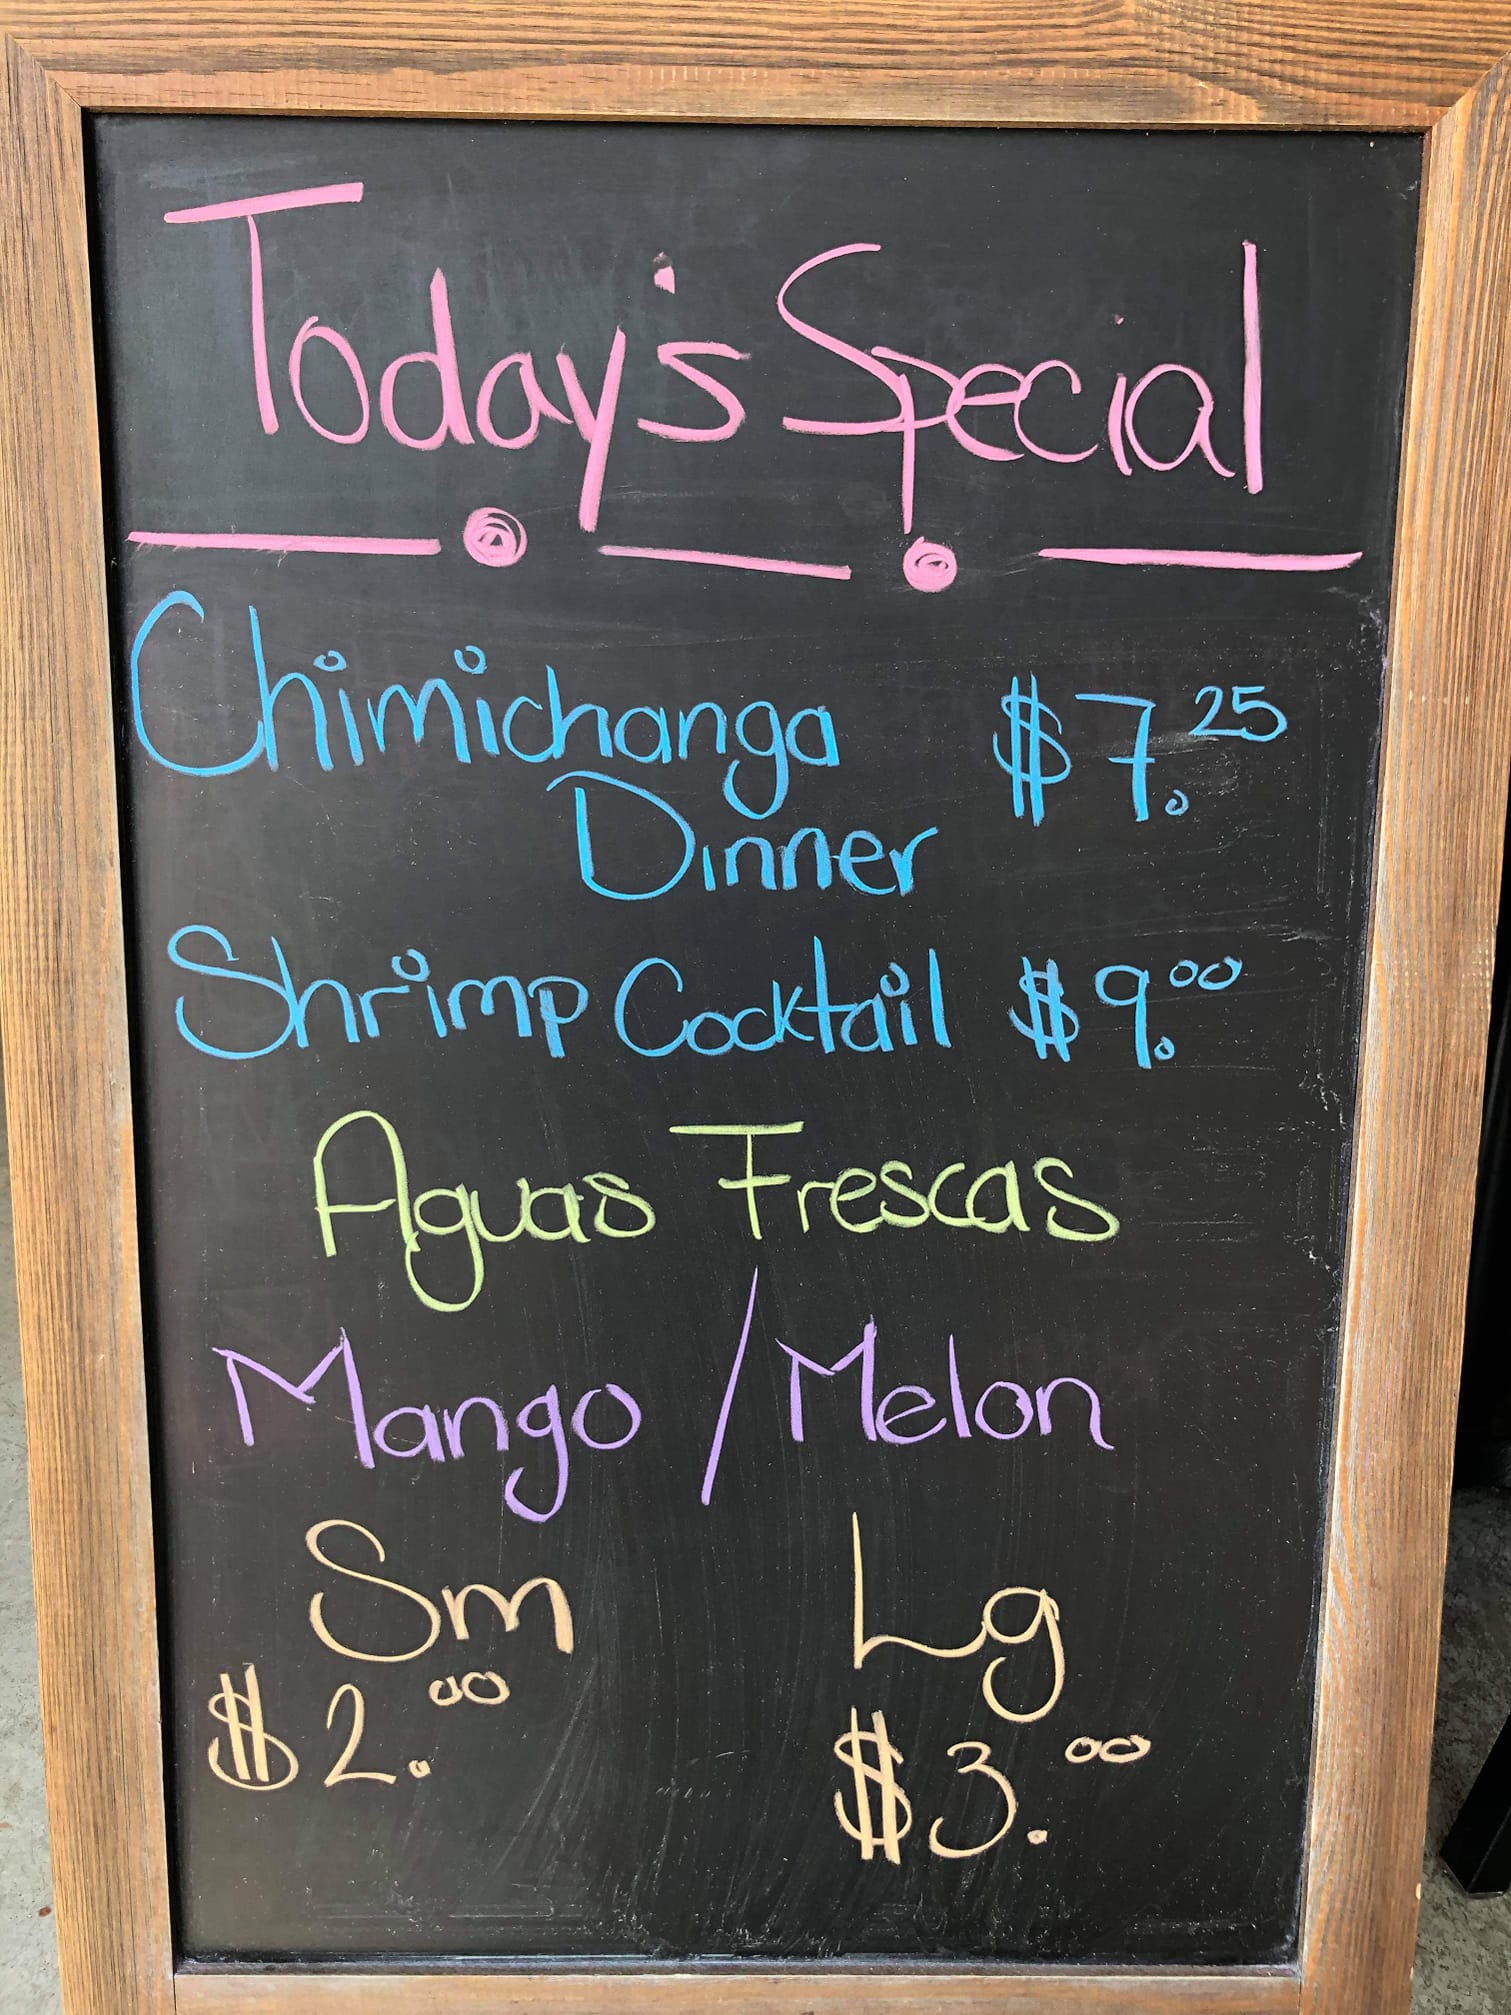 Today's Special
Chimichanga $7.25
Dinner
Shrimp Cocktail $9.00
Aguas Frescas
Mango / Melon
Sm Lg
$2.00 $3.00